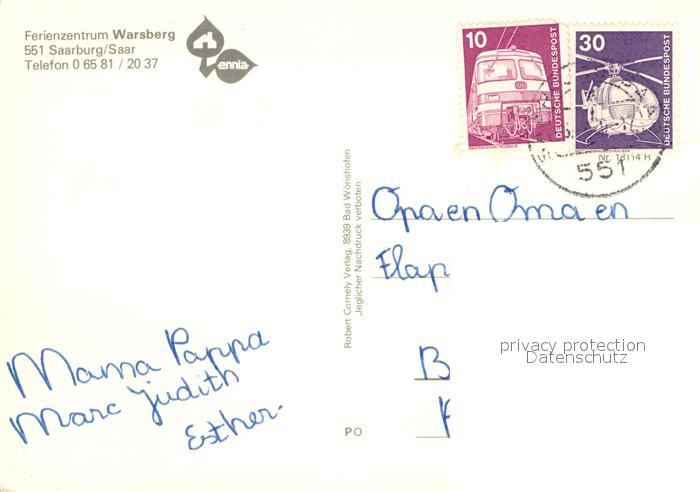 Ferienzentrum Warsberg
551 Saarburg/Saar
Telefon 0 65 81 / 20 37
ennia
10
DEUTSCHE BUNDESPOST
30
DEUTSCHE BUNDESPOST
Nr. 13114 H
551
Robert Cornely Verlag, 8939 Bad Wörishofen
Jeglicher Nachdruck verboten
Opa en Oma en
Flap
B
privacy protection
Datenschutz
Mama Pappa
Marc Judith
Esther.
PO